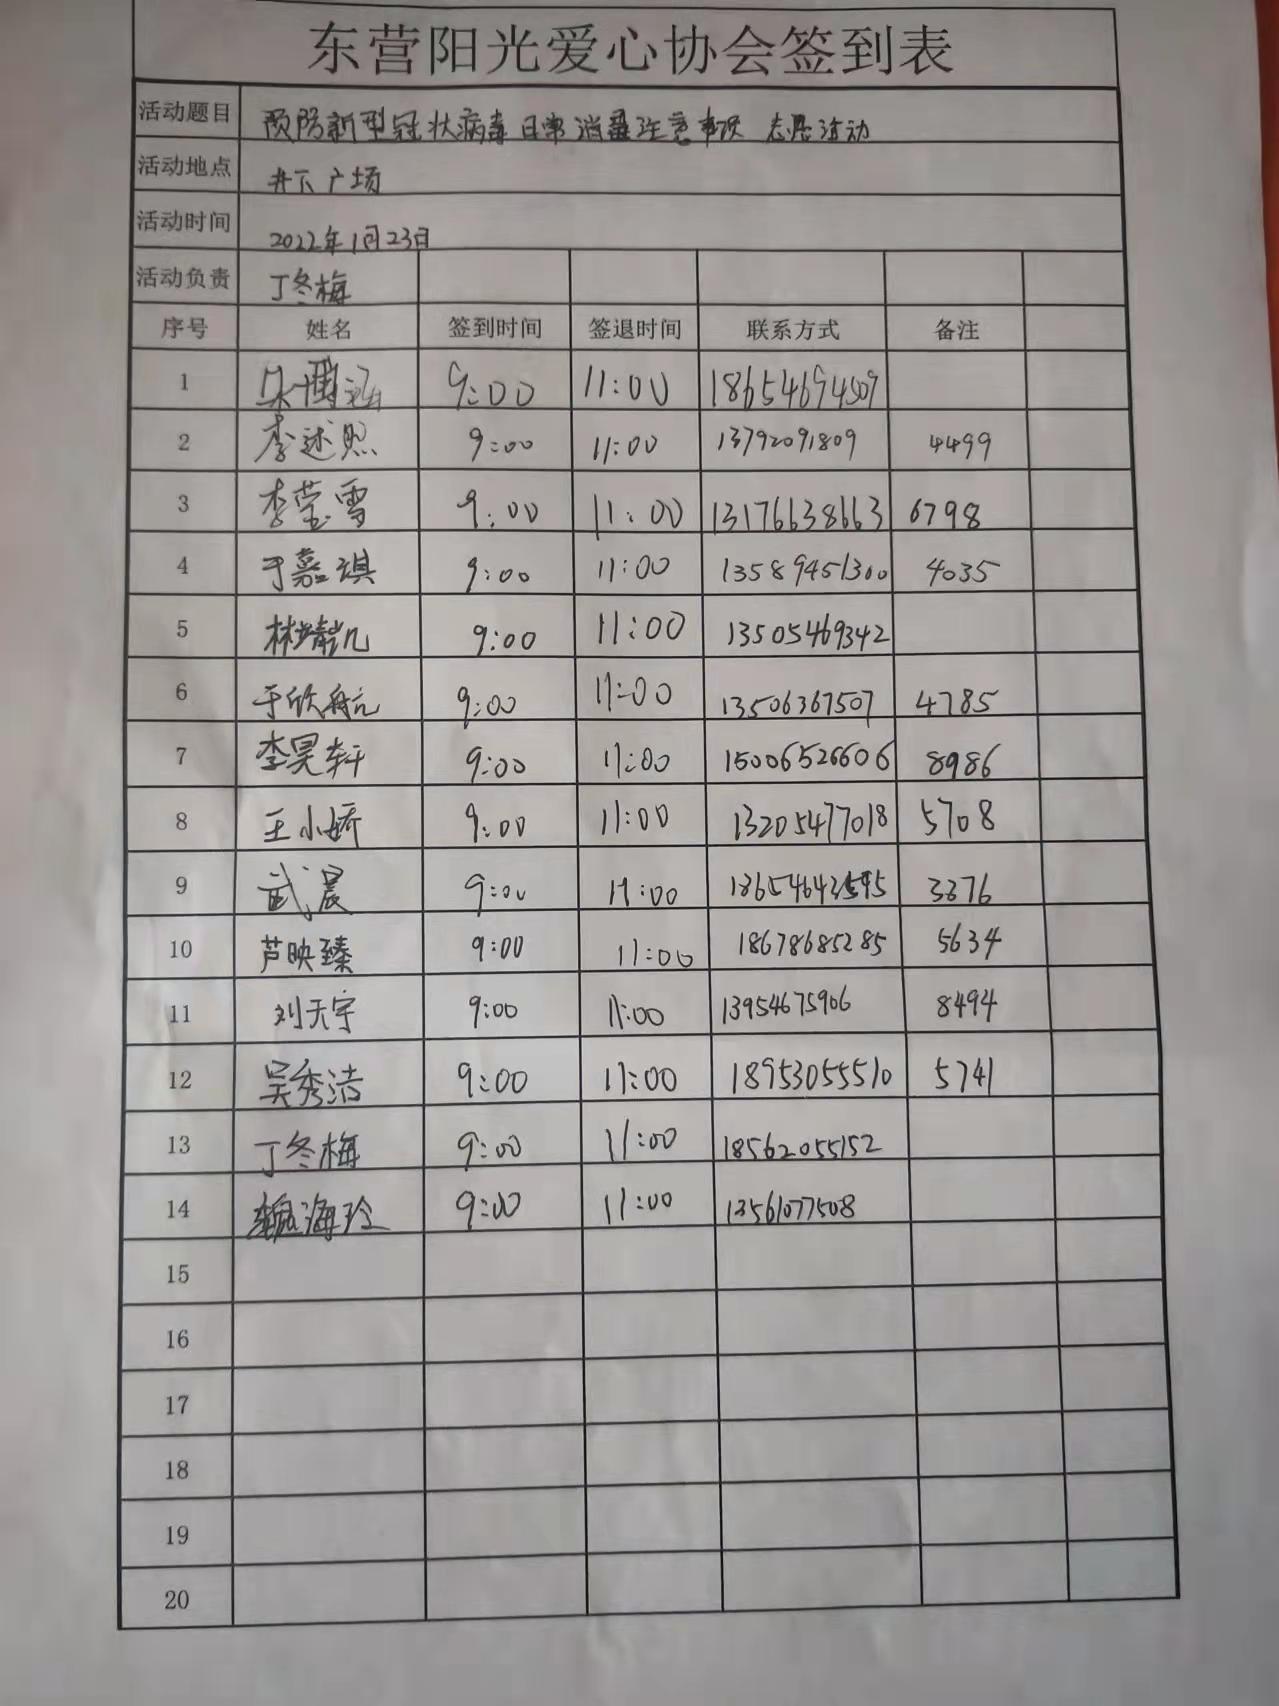 东营阳光爱心协会签到表
活动题目 预防新型冠状病毒日常消毒注意事项 志愿活动
活动地点 井下广场
活动时间 2022年1月23日
活动负责 丁冬梅
序号 姓名 签到时间 签退时间 联系方式 备注
1 9:00 11:00 18654694509
2 李述照 9:00 11:00 13792091809 4499
3 李莹雪 9:00 11:00 13176638663 6798
4 于嘉祺 9:00 11:00 13589451300 4035
5 林靖凯 9:00 11:00 13505469342
6 于欣航 9:00 11:00 13506367507 4785
7 李昊轩 9:00 11:00 15006526606 8986
8 王小娇 9:00 11:00 13205477018 5708
9 武晨 9:00 11:00 3376
10 芦映臻 9:00 11:00 18678685285 5634
11 刘天宇 9:00 11:00 13954675906 8494
12 吴秀洁 9:00 11:00 18953055510 5741
13 丁冬梅 9:00 11:00 18562055152
14 魏海玲 9:00 11:00 13561077508
15
16
17
18
19
20